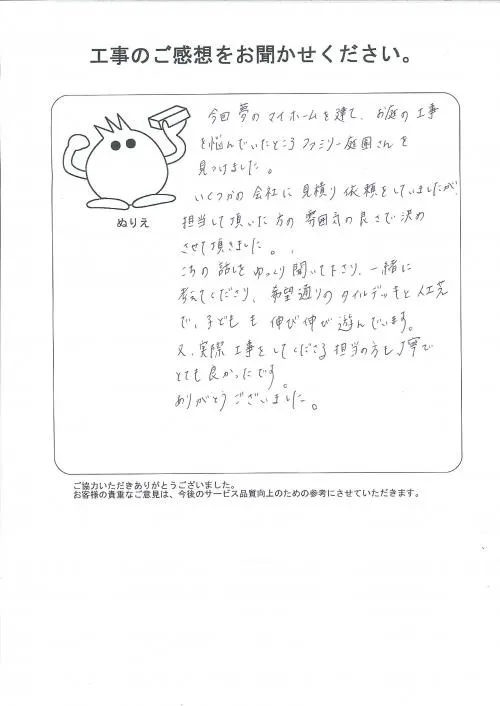 工事のご感想をお聞かせください。
今回夢のマイホームを建て、お庭の工事
を悩んでいたところファミリー庭園さんを
見つけました。
いくつかの会社に見積り依頼をしていましたが、
担当して頂いた方の雰囲気の良さで決め
させて頂きました。
こちらの話しをゆっくり聞いて下さり、一緒に
考えてくださり、希望通りのタイルデッキと人工芝
で、子どもも伸び伸び遊んでいます。
又、実際工事をしてくださる担当の方も丁寧で
とても良かったです。
ありがとうございました。
ぬりえ
ご協力いただきありがとうございました。
お客様の貴重なご意見は、今後のサービス品質向上のための参考にさせていただきます。